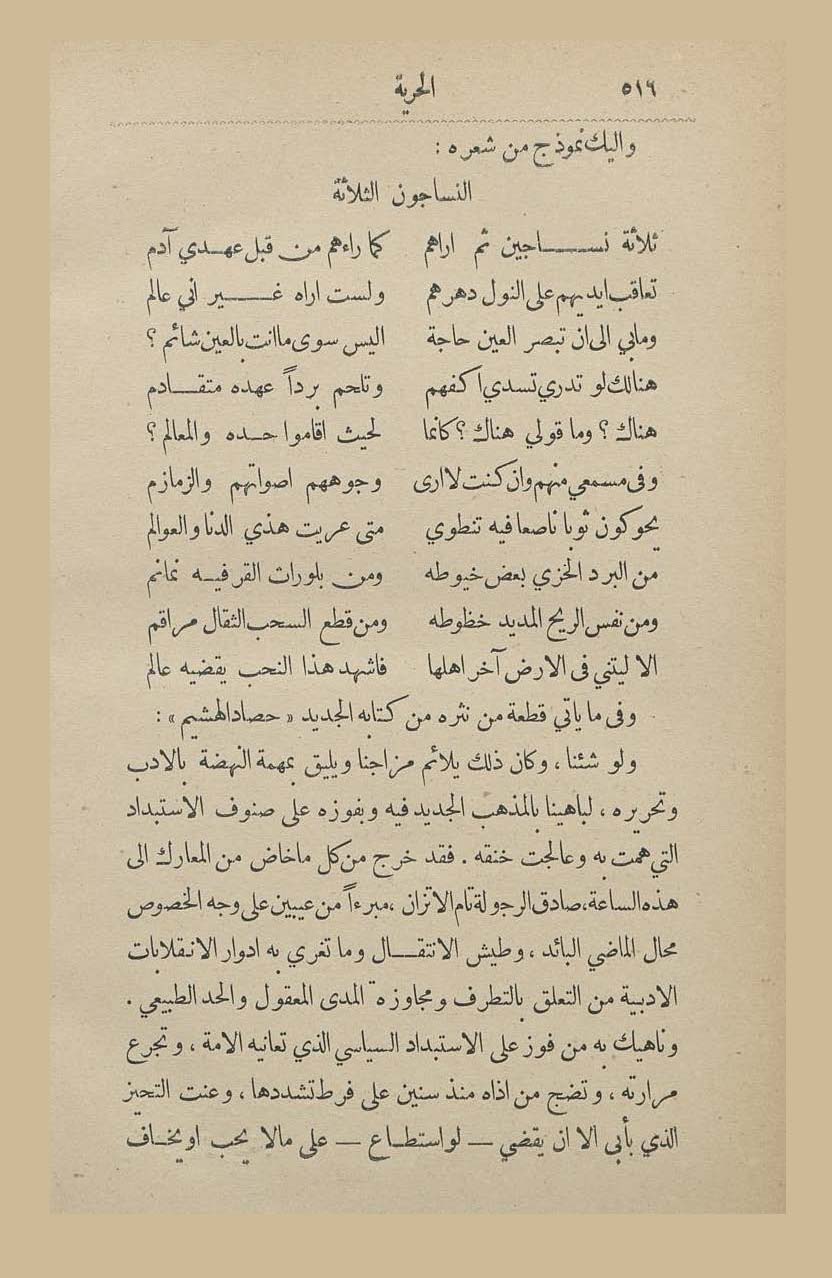 ٥١٦ الحرية
واليك نموذج من شعره :
النساجون الثلاثة
ثلاثة نساجين ثم اراهم كما راءهم من قبل عهدي آدم
تعاقب ايديهم على النول دهرهم ولست اراه غير اني عالم
ومابي الى ان تبصر العين حاجة اليس سوى ما انت بالعين شائم ؟
هنالك لو تدري تسدي اكفهم وتلحم برداً عهده متقادم
هناك ؟ وما قولي هناك ؟ كانما لحيث اقاموا حده والمعالم ؟
وفى مسمعي منهم وان كنت لا ارى وجوههم اصواتهم والزمازم
يحوكون ثوبا ناصعا فيه تنطوي متى عريت هذي الدنا والعوالم
من البرد الخزي بعض خيوطه ومن بلورات القر فيه نمانم
ومن نفس الريح المديد خظوطه ومن قطع السحب الثقال مراقم
الا ليتني فى الارض آخر اهلها فاشهد هذا النحب يقضيه عالم
وفى ما ياتي قطعة من نثره من كتابه الجديد « حصاد الهشيم » :
ولو شئنا ، وكان ذلك يلائم مزاجنا ويليق بمهمة النهضة بالادب
وتحريره ، لباهينا بالمذهب الجديد فيه وبفوزه على صنوف الاستبداد
التي همت به وعالجت خنقه . فقد خرج من كل ماخاض من المعارك الى
هذه الساعة ، صادق الرجولة تام الاتزان ، مبرءاً من عيبين على وجه الخصوص
محال الماضي البائد ، وطيش الانتقال وما تغري به ادوار الانقلابات
الادبية من التعلق بالتطرف ومجاوزة المدى المعقول والحد الطبيعي .
وناهيك به من فوز على الاستبداد السياسي الذي تعانيه الامة ، وتجرع
مرارته ، وتضج من اذاه منذ سنين على فرط تشددها ، وعنت التحيز
الذي يأبى الا ان يقضي — لو استطاع — على مالا يحب او يخاف